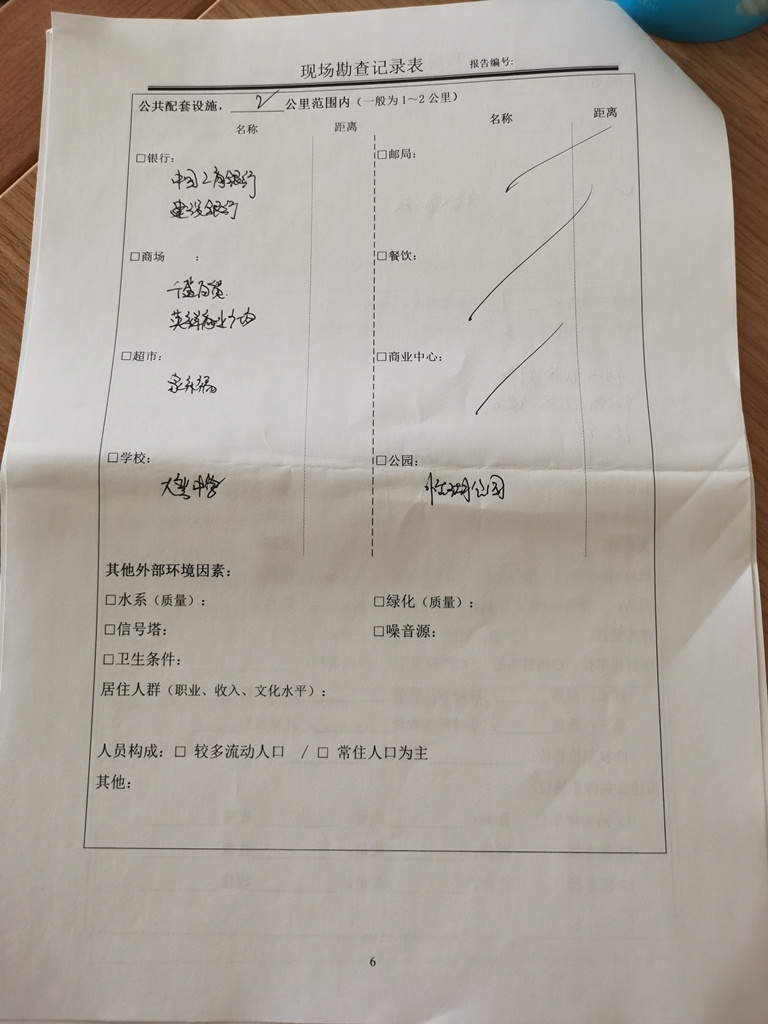 现场勘查记录表 报告编号:
公共配套设施，2公里范围内（一般为1～2公里）
名称 距离 名称 距离
□银行: □邮局:
中国工商银行
建设银行
□商场 : □餐饮:
千盛百货
商业广场
□超市: □商业中心:
家乐福
□学校: □公园:
中学 湖公园
其他外部环境因素:
□水系（质量）: □绿化（质量）:
□信号塔: □噪音源:
□卫生条件:
居住人群（职业、收入、文化水平）:
人员构成: □ 较多流动人口 / □ 常住人口为主
其他:
6